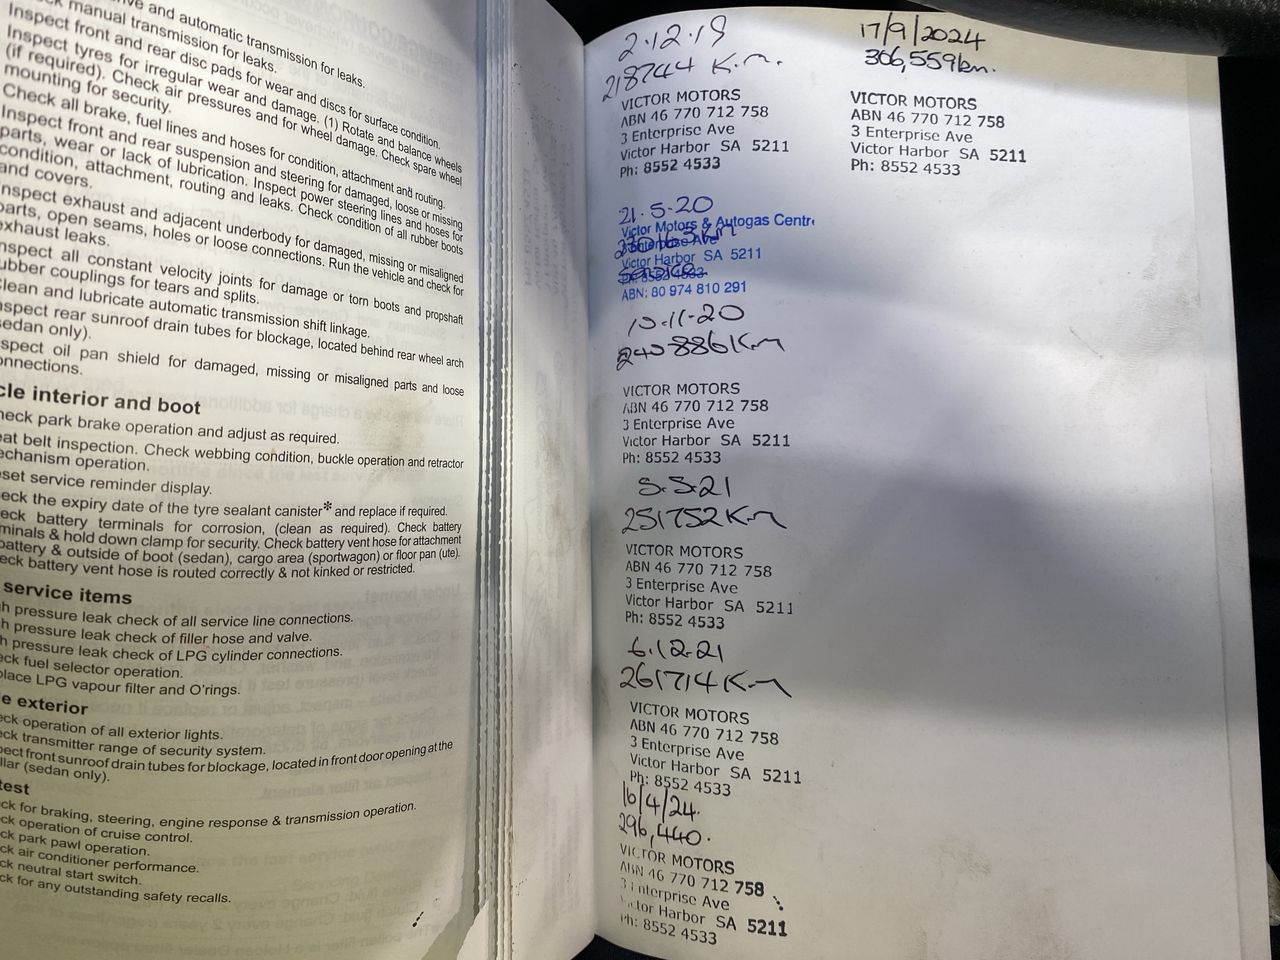 ve and automatic transmission for leaks.
ck manual transmission for leaks.
Inspect front and rear disc pads for wear and discs for surface condition.
Inspect tyres for irregular wear and damage. (1) Rotate and balance wheels
(if required). Check air pressures and for wheel damage. Check spare wheel
mounting for security.
Check all brake, fuel lines and hoses for condition, attachment and routing.
Inspect front and rear suspension and steering for damaged, loose or missing
parts, wear or lack of lubrication. Inspect power steering lines and hoses for
condition, attachment, routing and leaks. Check condition of all rubber boots
and covers.
nspect exhaust and adjacent underbody for damaged, missing or misaligned
parts, open seams, holes or loose connections. Run the vehicle and check for
exhaust leaks.
nspect all constant velocity joints for damage or torn boots and propshaft
ubber couplings for tears and splits.
lean and lubricate automatic transmission shift linkage.
nspect rear sunroof drain tubes for blockage, located behind rear wheel arch
sedan only).
spect oil pan shield for damaged, missing or misaligned parts and loose
onnections.
cle interior and boot
heck park brake operation and adjust as required.
eat belt inspection. Check webbing condition, buckle operation and retractor
echanism operation.
eset service reminder display.
eck the expiry date of the tyre sealant canister* and replace if required.
eck battery terminals for corrosion, (clean as required). Check battery
minals & hold down clamp for security. Check battery vent hose for attachment
battery & outside of boot (sedan), cargo area (sportwagon) or floor pan (ute).
eck battery vent hose is routed correctly & not kinked or restricted.
service items
h pressure leak check of all service line connections.
h pressure leak check of filler hose and valve.
h pressure leak check of LPG cylinder connections.
eck fuel selector operation.
place LPG vapour filter and O'rings.
e exterior
eck operation of all exterior lights.
ck transmitter range of security system.
pect front sunroof drain tubes for blockage, located in front door opening at the
llar (sedan only).
test
ck for braking, steering, engine response & transmission operation.
ck operation of cruise control.
ck park pawl operation.
ck air conditioner performance.
ck neutral start switch.
ck for any outstanding safety recalls.
2.12.19
218744 K.m.
VICTOR MOTORS
ABN 46 770 712 758
3 Enterprise Ave
Victor Harbor SA 5211
Ph: 8552 4533
21.5.20
Victor Motors & Autogas Centr
3 Enterprise Ave
Victor Harbor SA 5211
Ph: 8552 4533
ABN: 80 974 810 291
10-11-20
240886 Km
VICTOR MOTORS
ABN 46 770 712 758
3 Enterprise Ave
Victor Harbor SA 5211
Ph: 8552 4533
5.5.21
251752 Km
VICTOR MOTORS
ABN 46 770 712 758
3 Enterprise Ave
Victor Harbor SA 5211
Ph: 8552 4533
6.12.21
261714 Km
VICTOR MOTORS
ABN 46 770 712 758
3 Enterprise Ave
Victor Harbor SA 5211
Ph: 8552 4533
16/4/24.
296,440.
VICTOR MOTORS
ABN 46 770 712 758
3 Enterprise Ave
Victor Harbor SA 5211
Ph: 8552 4533
17/9/2024
306,559km.
VICTOR MOTORS
ABN 46 770 712 758
3 Enterprise Ave
Victor Harbor SA 5211
Ph: 8552 4533